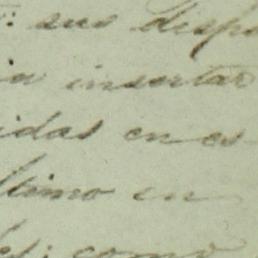 : sus despo
ia insertar
idas en es-
ltimo en
les; como